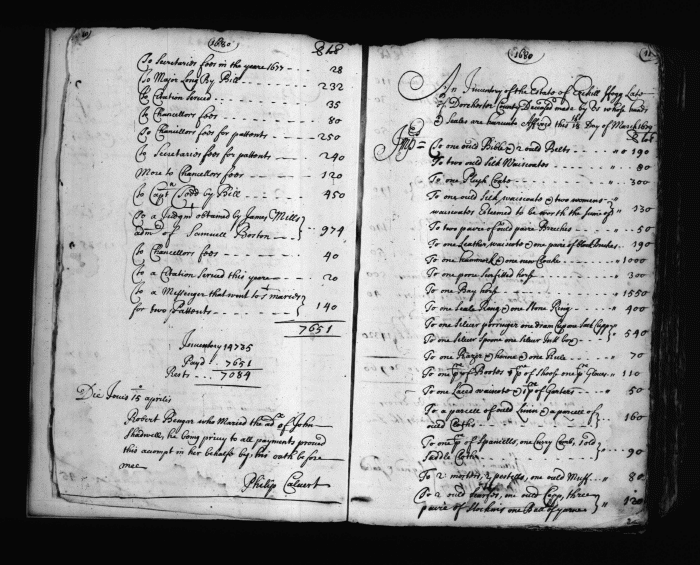 1680
lbs
To Secretaries fees in the yeare 1677 28
To Major Long By Bill 232
To Citation Served 35
To Chancellors fees 80
To Chancellors fees for pattents 250
To Secretaries fees for pattents 240
More to Chancellors fees 120
To Capt Todd by Bill 450
To a Judgmt obtained by James Mills
admr of Samuell Boston 974
To Chancellors fees 40
To a Citation Served this yeare 20
To a Messenger that went to St maries
for two Pattents 140
7651
Inventory 14735
Payd 7651
Rests 7084
Die Jovis 15 aprilis
Robert Benger who Maried the of John
Shadwell, he being privy to all payments proved
this accompt in her behalfe by his oath before
mee
Philip Calvert
1680
91
An Inventory of the Estate of Late
of Dorchester County Deceased made by us whose hands
& Seals are hereunto Affixed this 18 Day of March 1679
lbs
Imps To one ould Bible & 2 ould Belts 190
To two ould Silk Waiscoates 80
To one Plush Coate 300
To one ould Silk waiscoate & two womens
waiscoates Esteemed to be worth the sume of 330
To two paire of ould paire Breeches 50
To one Leather waiscote & one paire of black Breeches 190
To one hammock & one new Cloake 1000
To one pone surfitted horse 300
To one Bay horse 1550
To one Seale Ring & one Stone Ring 400
To one Silver porringer one dram Cup one
To one Silver Spoone one Silver Box 540
To one Razor & hone & one 70
To one pr of Bootes 1 pr of Shoes one pr Gloves 110
To one Laced waiscote & 1 pr of Garters 50
To a parcele of ould Linen & a parcele of
ould Cloths 160
To one pr of Spaniells, one Curry Comb, 1 old
Saddle Cloth 90
To 2 mortars, 2 pestells, one ould Muff 80
To 2 ould one ould Capp, three
paire of Stockins one Ball of yarne 120